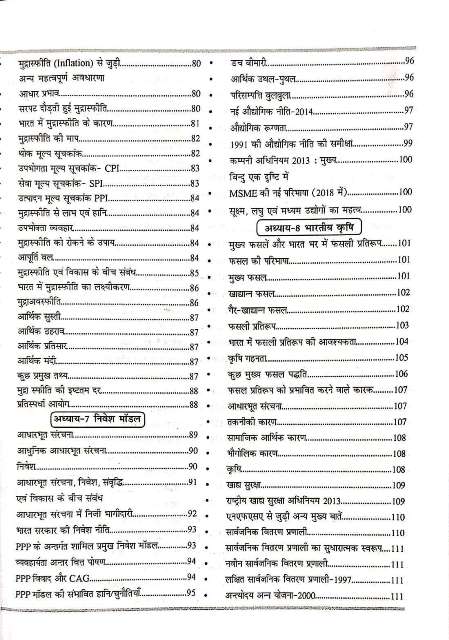 मुद्रास्फीति (Inflation) से जुड़ी.....................80
अन्य महत्वपूर्ण अवधारणा
आधार प्रभाव.....................80
सरपट दौड़ती हुई मुद्रास्फीति.....................80
भारत में मुद्रास्फीति के कारण.....................81
मुद्रास्फीति की माप.....................82
थोक मूल्य सूचकांक.....................82
उपभोगता मूल्य सूचकांक- CPI.....................83
सेवा मूल्य सूचकांक- SPI.....................83
उत्पादन मूल्य सूचकांक PPI.....................84
मुद्रास्फीति से लाभ एवं हानि.....................84
उपभोक्ता व्यवहार.....................84
मुद्रास्फीति को रोकने के उपाय.....................84
आपूर्ति बल.....................84
मुद्रास्फीति एवं विकास के बीच संबंध.....................85
भारत में मुद्रास्फीति का लक्ष्यीकरण.....................86
मुद्राअवस्फीति.....................86
आर्थिक सुस्ती.....................87
आर्थिक ठहराव.....................87
आर्थिक प्रतिसार.....................87
आर्थिक मंदी.....................87
कुछ प्रमुख तथ्य.....................87
मुद्रा स्फीति की इष्टतम दर.....................88
प्रतिस्पर्धा आयोग.....................88
अध्याय-7 निवेश मॉडल
आधारभूत संरचना.....................89
आधुनिक आधारभूत संरचना.....................90
निवेश.....................90
आधारभूत संरचना, निवेश, संवृद्धि.....................91
एवं विकास के बीच संबंध
आधारभूत संरचना में निजी भागीदारी.....................92
भारत सरकार की निवेश नीति.....................93
PPP के अन्तर्गत शामिल प्रमुख निवेश मॉडल.....................93
व्यवहार्यता अन्तर वित्त पोषण.....................94
PPP विवाद और CAG.....................94
PPP मॉडल की संभावित हानि/चुनौतियाँ.....................95
• डच बीमारी.....................96
• आर्थिक उथल-पुथल.....................96
• परिसम्पत्ति बुलबुला.....................96
• नई औद्योगिक नीति-2014.....................97
• औद्योगिक रूग्णता.....................97
• 1991 की औद्योगिक नीति की समीक्षा.....................99
• कम्पनी अधिनियम 2013 : मुख्य.....................100
बिन्दु एक दृष्टि में
• MSME की नई परिभाषा (2018 में).....................100
• सूक्ष्म, लघु एवं मध्यम उद्योगों का महत्व.....................100
अध्याय-8 भारतीय कृषि
• मुख्य फसलें और भारत भर में फसली प्रतिरूप.....................101
• फसल की परिभाषा.....................101
• मुख्य फसल.....................101
• खाद्यान्न फसल.....................102
• गैर-खाद्यान्न फसल.....................102
• फसली प्रतिरूप.....................103
• भारत में फसली प्रतिरूप की आवश्यकता.....................104
• कृषि गहनता.....................105
• कुछ मुख्य फसल पद्धति.....................106
• फसल प्रतिरूप को प्रभावित करने वाले कारक.....................107
• आधारभूत संरचा.....................107
• तकनीकी कारण.....................107
• सामाजिक आर्थिक कारण.....................108
• भौगोलिक कारण.....................108
• कृषि.....................108
• खाद्य सुरक्षा.....................109
• राष्ट्रीय खाद्य सुरक्षा अधिनियम 2013.....................109
• एनएफएसए से जुड़ी अन्य मुख्य बातें.....................110
• सार्वजनिक वितरण प्रणाली.....................110
• सार्वजनिक वितरण प्रणाली का सुधारात्मक स्वरूप.....................111
• नवीन सार्वजनिक वितरण प्रणाली.....................111
• लक्षित सार्वजनिक वितरण प्रणाली-1997.....................111
• अन्त्योदय अन्न योजना-2000.....................111